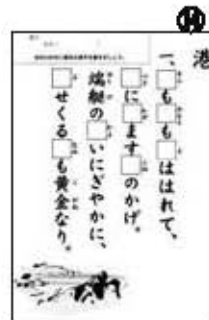 港
一、□も□もははれて、
□に□ます□のかげ。
端艇の□いにぎやかに、
□せくる□も黄金なり。